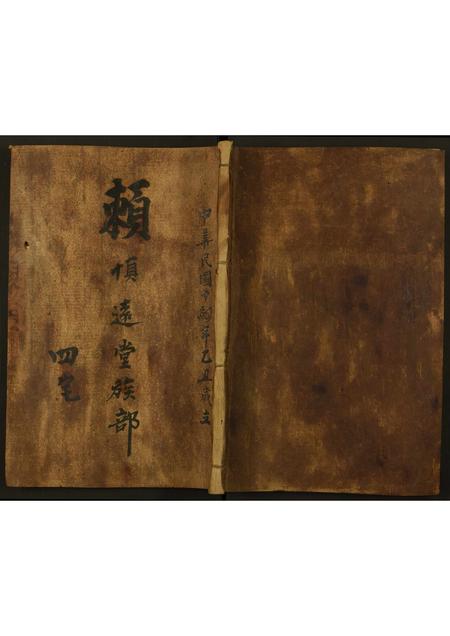 中華民國十四年乙丑歲立
賴愼遠堂族部
四宅